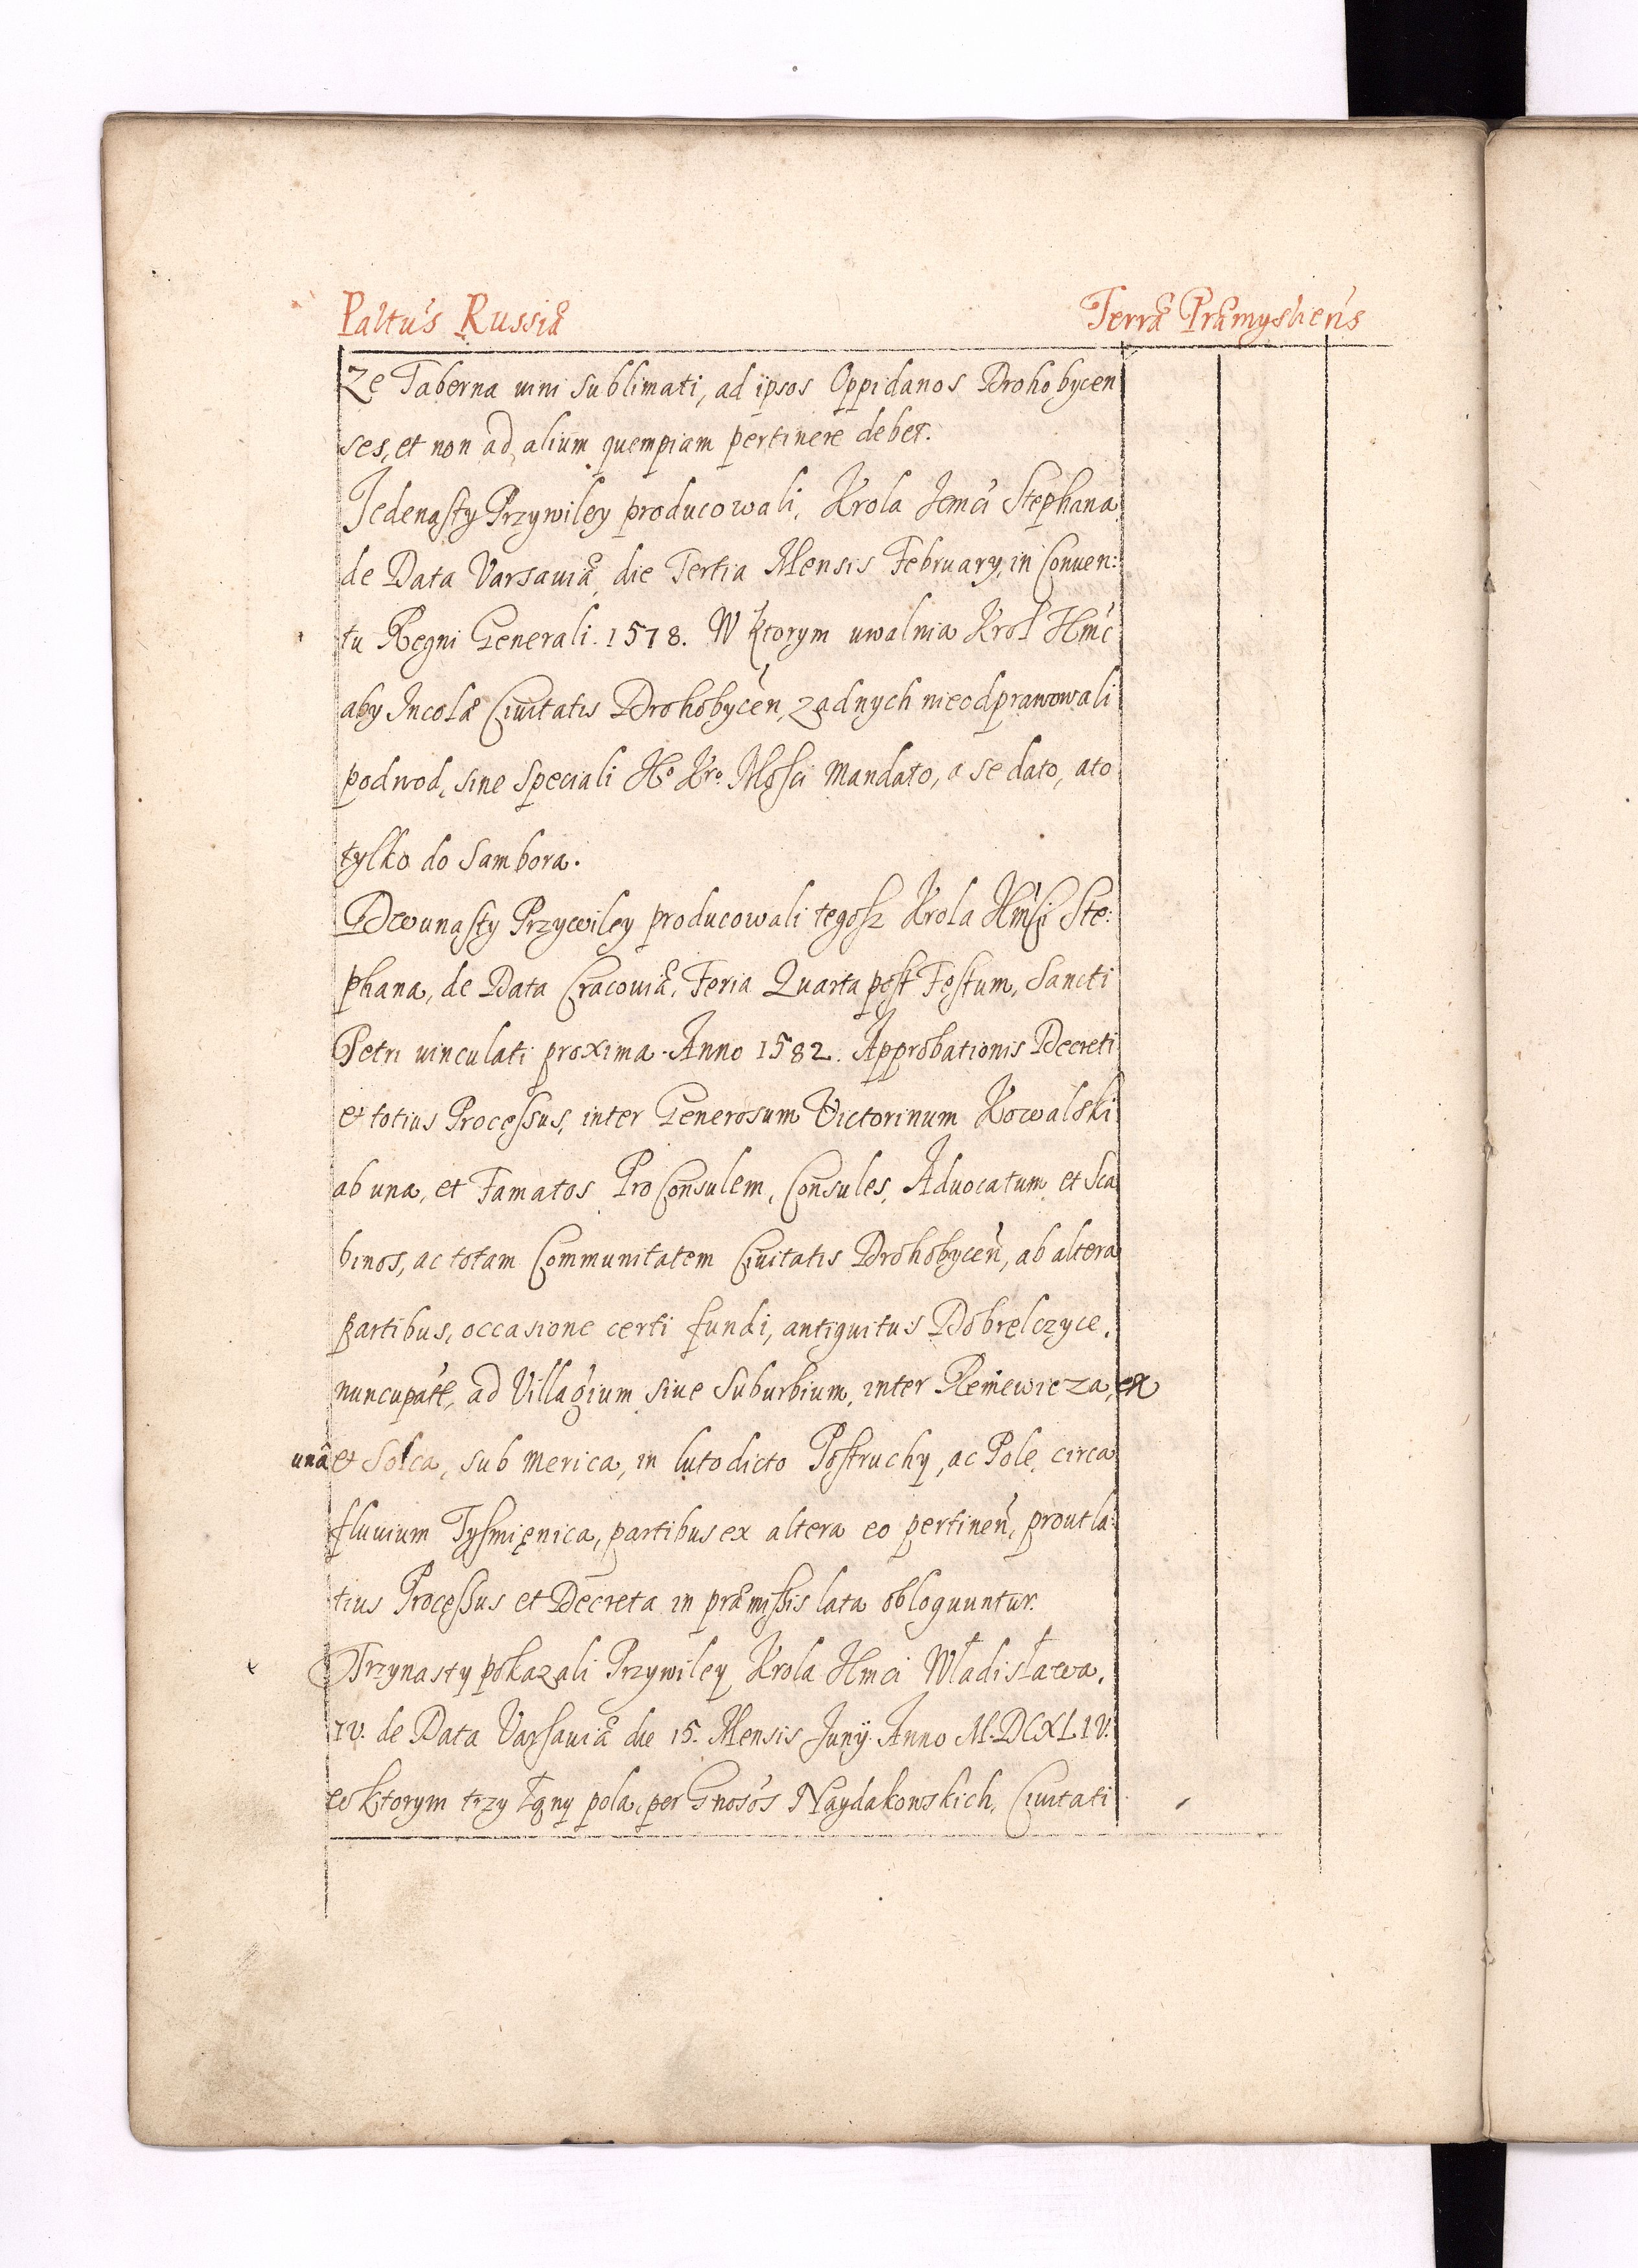 Pałtus Russiæ Terræ Præmysliens
Ze Taberna uini sublimati, ad ipsos Oppidanos Drohobycen
ses, et non ad alium quempiam pertinere debet.
Jedenasty Przywiley producowali, Krola Jemci Stephana
de Data Varsauiæ, die Tertia Mensis February, in Conuen:
tu Regni Generali. 1578. W ktorym uwalnia Krol JKmć
aby Incolæ Ciuitatis Drohobycen, zadnych nieodprawowali
podwod, sine speciali Jo Kro Mości mandato, a se dato, ato
tylko do Sambora.
Dwunasty Przywiley producowali tegosz Krola JKmści Ste:
phana, de Data Cracouiæ, Feria Quarta post Festum, Sancti
Petri uinculati proxima. Anno 1582. Approbationis Decreti
et totius Processus, inter Generosum Victorinum Kowalski
ab una, et Famatos ProConsulem, Consules, Aduocatum et Sca
binos, ac totam Communitatem Ciuitatis Drohobycen, ab altera
partibus, occasione certi fundi, antiquitus Dobrelczyce.
nuncupatt, ad Villagium siue Suburbium, inter Remiewicza, ex
una et Solca, sub merica, in luto dicto Postruchy, ac Pole circa
fluuium Tysmięnica, partibus ex altera eo pertinen, prout la:
tius Processus et Decreta in præmissis lata obloquuntur.
Trzynasty pokazali Przywiley Krola JKmci Władisława.
IV. de Data Varsauiæ die 15. Mensis Juny. Anno M.DCXLIV.
w ktorym trzy łąny pola, per Gnosos Naydakowskich, Ciuitati